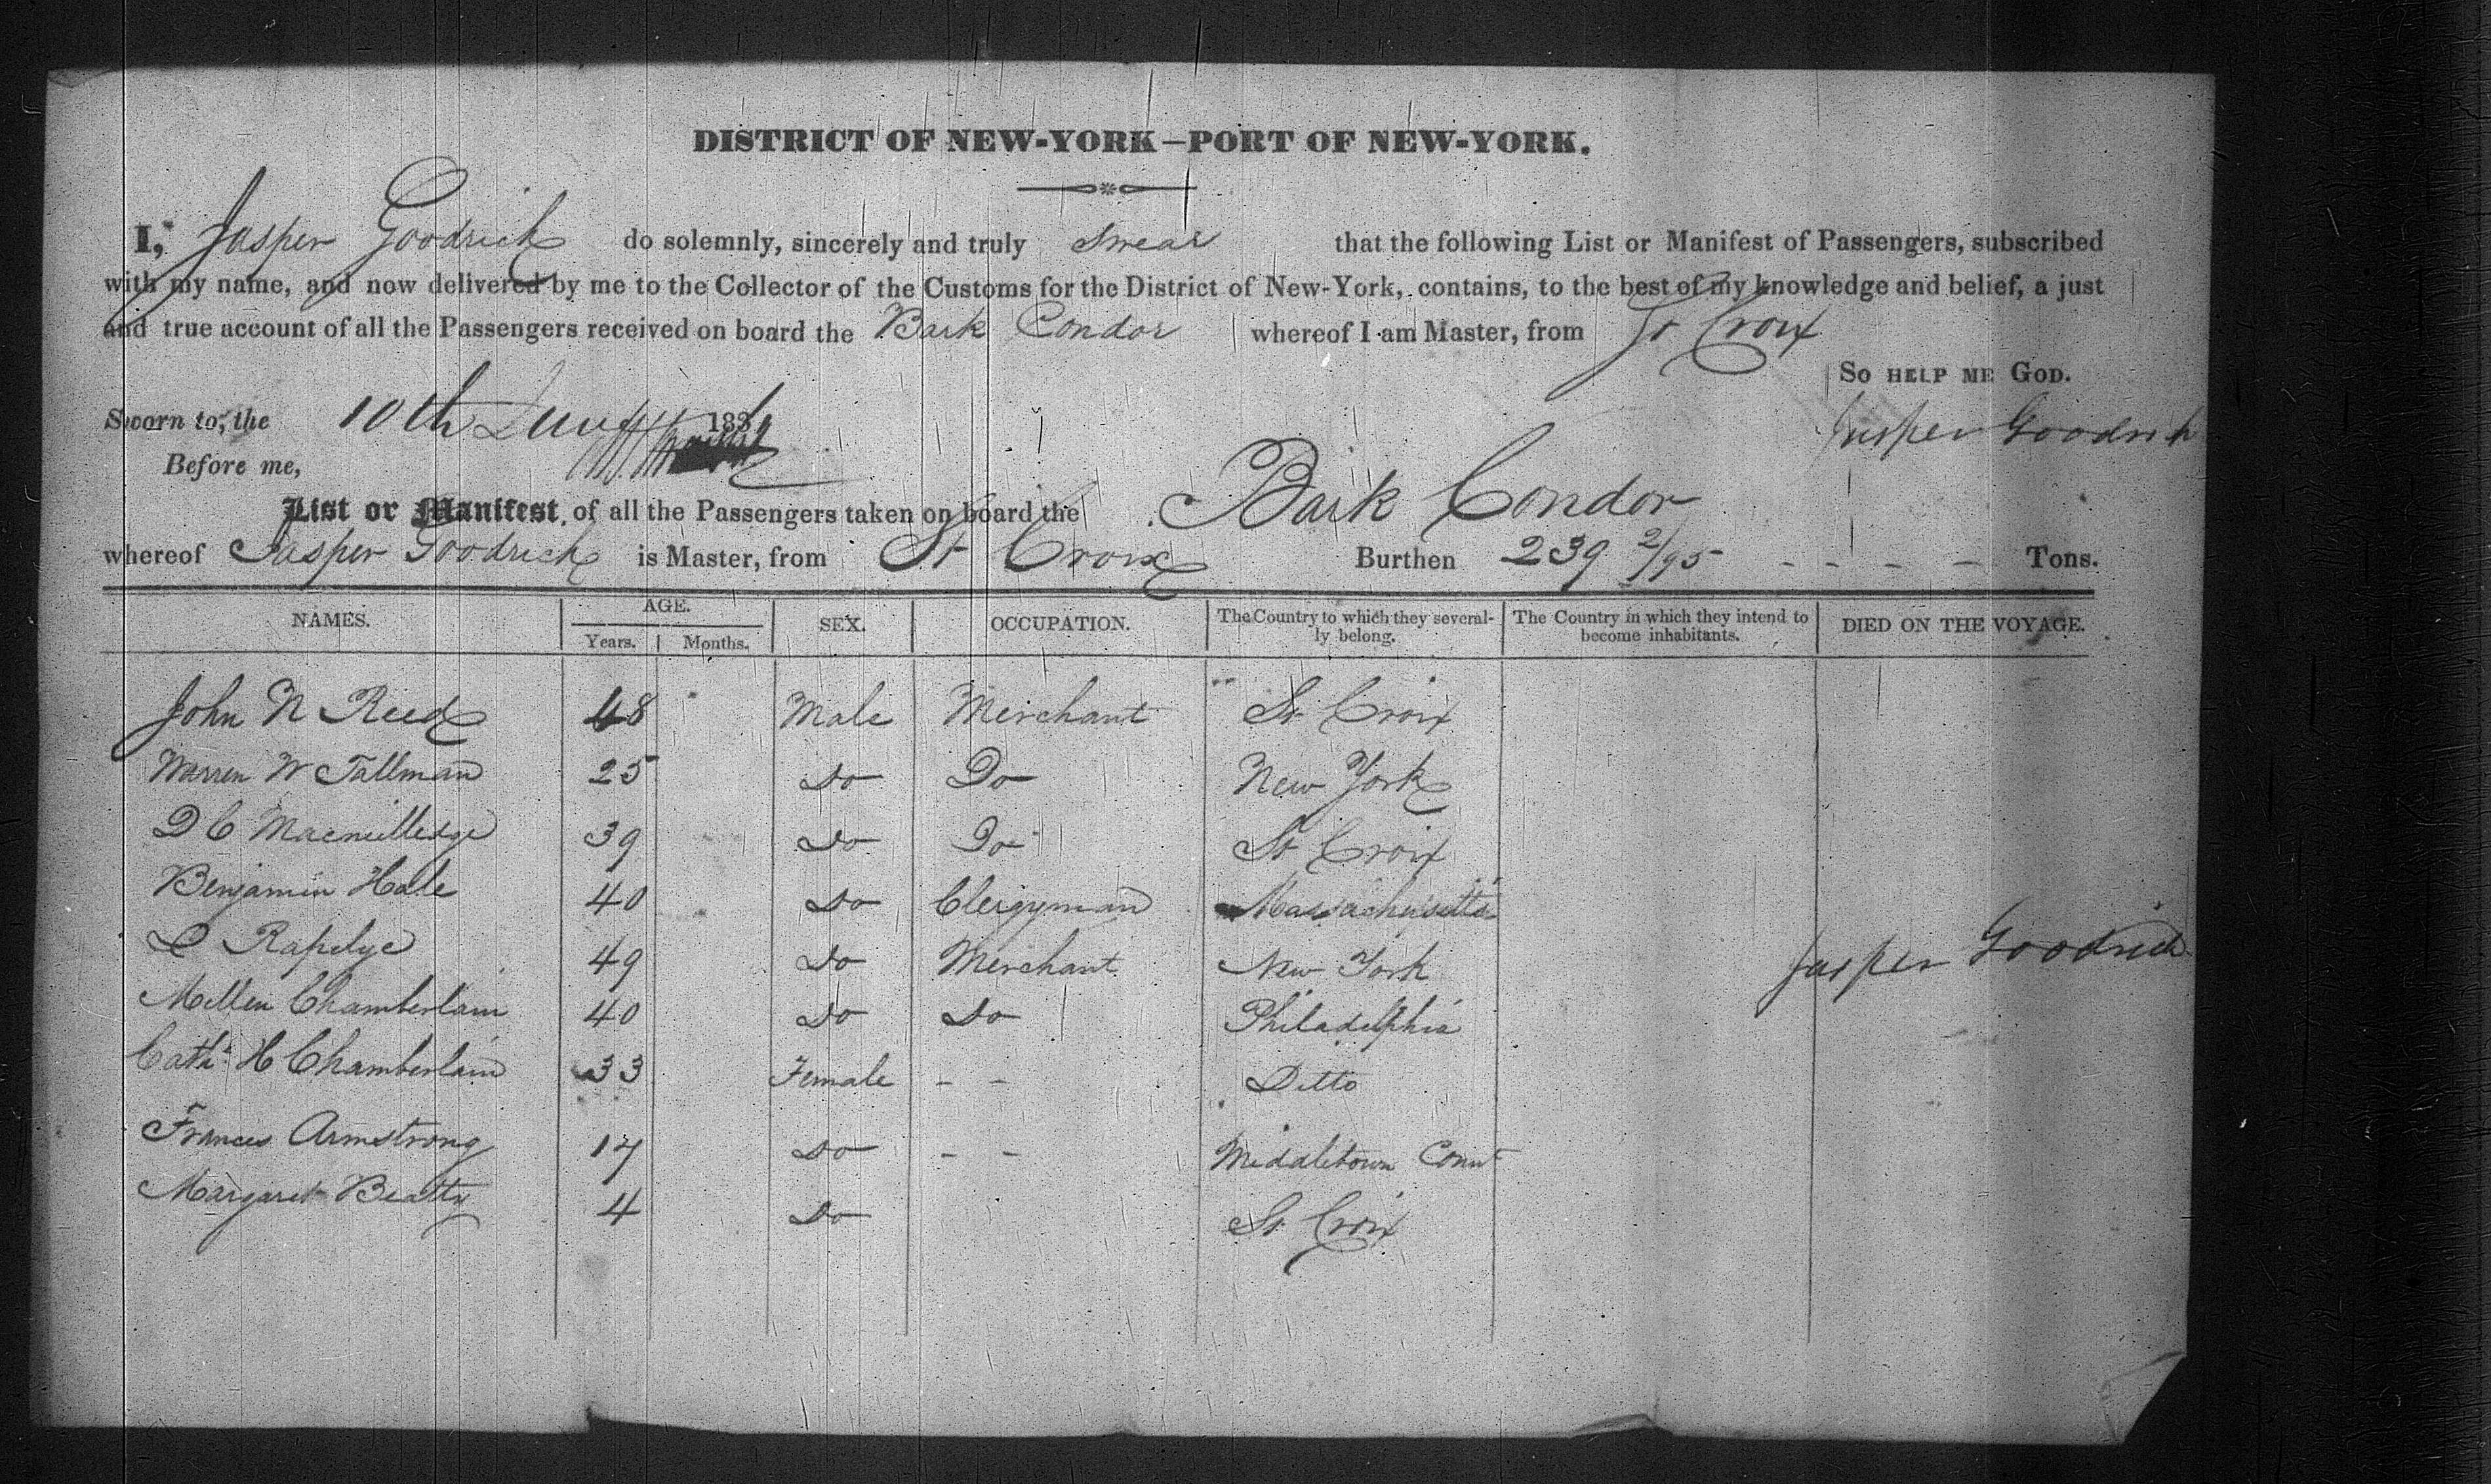 DISTRICT OF NEW-YORK—PORT OF NEW-YORK.
I, Jasper Goodrich do solemnly, sincerely and truly swear that the following List or Manifest of Passengers, subscribed
with my name, and now delivered by me to the Collector of the Customs for the District of New-York, contains, to the best of my knowledge and belief, a just
and true account of all the Passengers received on board the Bark Condor whereof I am Master, from St Croix
So help me God.
Sworn to, the 10th June 183 Jasper Goodrich
Before me,
List or Manifest, of all the Passengers taken on board the Bark Condor
whereof Jasper Goodrich is Master, from St Croix Burthen 239 2/95 - - - - Tons.
NAMES. AGE. SEX. OCCUPATION. The Country to which they several-ly belong. The Country in which they intend to become inhabitants. DIED ON THE VOYAGE.
Years. Months.
John N Reed 48 Male Merchant St Croix
Warren W Tallman 25 Do Do New York
D C Macmilledge 39 Do Do St Croix
Benjamin Hale 40 Do Clergyman Massachusetts
L Rapelye 49 Do Merchant New York
Jasper Goodrich
Mellen Chamberlain 40 Do Do Philadelphia
Cath. H Chamberlain 33 Female - - Ditto
Frances Armstrong 17 Do - - Middletown Connt
Margaret Beatty 4 Do St Croix